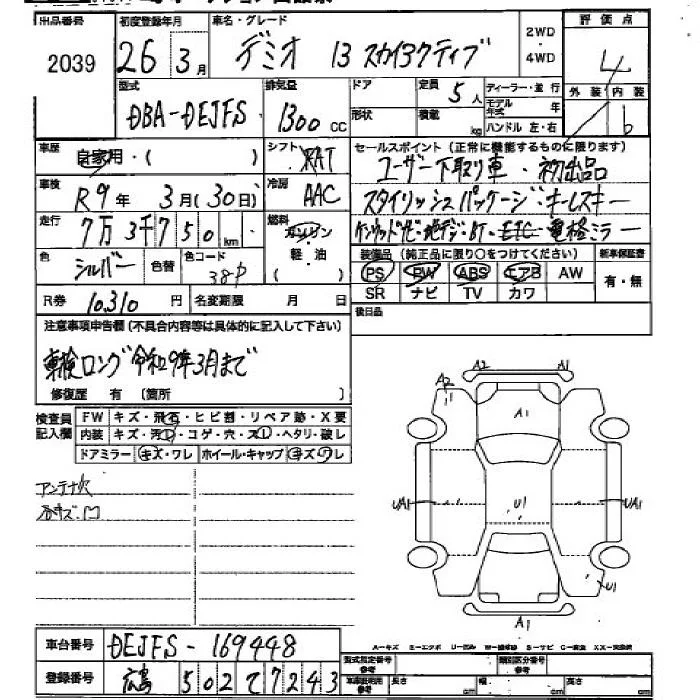 出品番号 初度登録年月 車名・グレード 2WD・4WD 評価点
2039 26年 3月 デミオ 13 スカイアクティブ 4
型式 排気量 ドア 定員 ディーラー・並行 外装 内装
DBA-DEJFS 1300cc 形状 5人 積載 kg モデル年式 年 ハンドル 左・右 b
車歴 自家用・( ) シフト FAT セールスポイント(正常に機能するものに限ります)
ユーザー下取り車・初出品
車検 R9年 3月(30日) 冷房 AAC スタイリッシュパッケージ・キーレスキー
走行 7万3千750km 燃料 ガソリン・軽油( ) ケンウッドナビ・地デジ・BT・ETC・電格ミラー
色 シルバー 色替 色コード 38P 装備品(純正品に限り○をつけてください) 新車保証書
PS PW ABS エアB AW 有・無
R券 10,310円 名変期限 月 日 SR ナビ TV カワ
注意事項申告欄(不具合内容等は具体的に記入して下さい) 後日品
車検ロング令和9年3月まで
修復歴 有 〔箇所 〕
検査員記入欄 FW キズ・飛石・ヒビ割・リペア跡・X要
内装 キズ・汚レ・コゲ・穴・スレ・ヘタリ・破レ
ドアミラー キズ・ワレ ホイール・キャップ キズ・ワレ
アンテナ欠
各キズ・凹
A2 A1
A2
A1
UA1 U1 UA1
U1
A1
A=キズ E=エクボ U=凹み W=補修跡 S=サビ C=腐食 XX=交換済
車台番号 DEJFS-169448
型式指定番号 参考 類別区分番号 参考
登録番号 広島 502 て 7243
車庫証明用参考 長さ cm 幅 cm 高さ cm